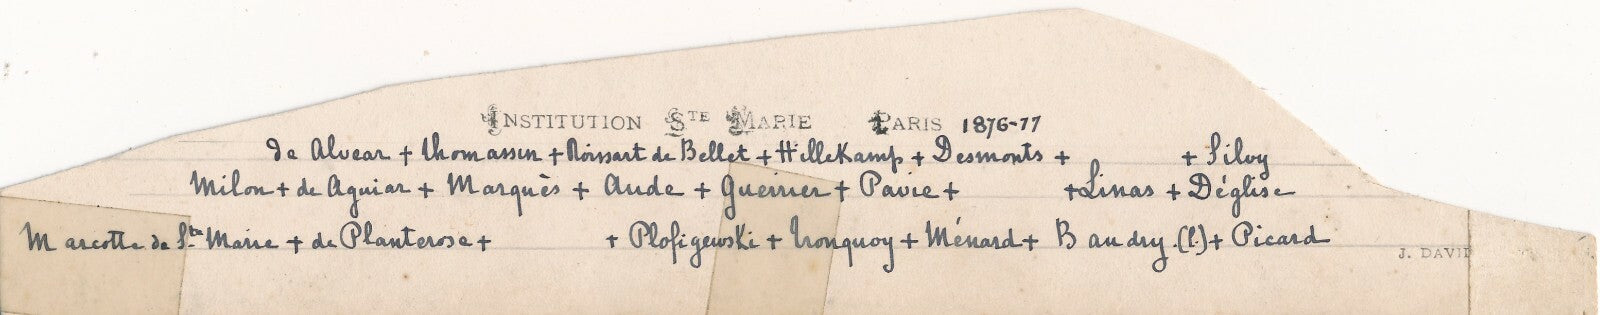 INSTITUTION STE MARIE PARIS 1876-77
de Alvear + Thomassin + Noissart de Bellet + Hillekamp + Desmonts + + Silvy
Milon + de Aguiar + Marquès + Aude + Guerrier + Pavie + + Linas + Déglise
Marcotte de Ste Marie + de Planterose + + Plofigewski + Tronquoy + Ménard + Baudry.(l.) + Picard
J. DAVID